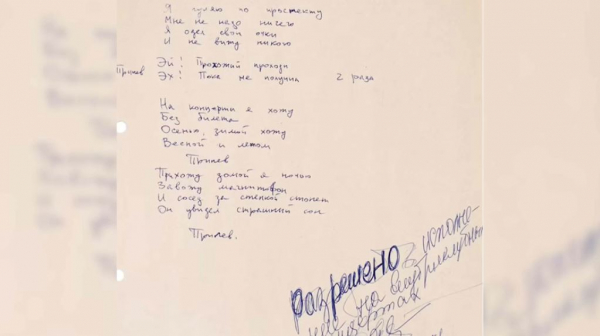 Я гуляю по проспекту
Мне не надо ничего
Я одел свои очки
И не вижу никого
Эй! Прохожий проходи
Припев Эх! Пока не получил 2 раза
На концерты я хожу
Без билета
Осенью, зимой хожу
Весной и летом
Припев
Прихожу домой я ночью
Завожу магнитофон
И сосед за стенкой стонет
Он увидел страшный сон
Припев.
разрешено к исполне-
нию на
концертах